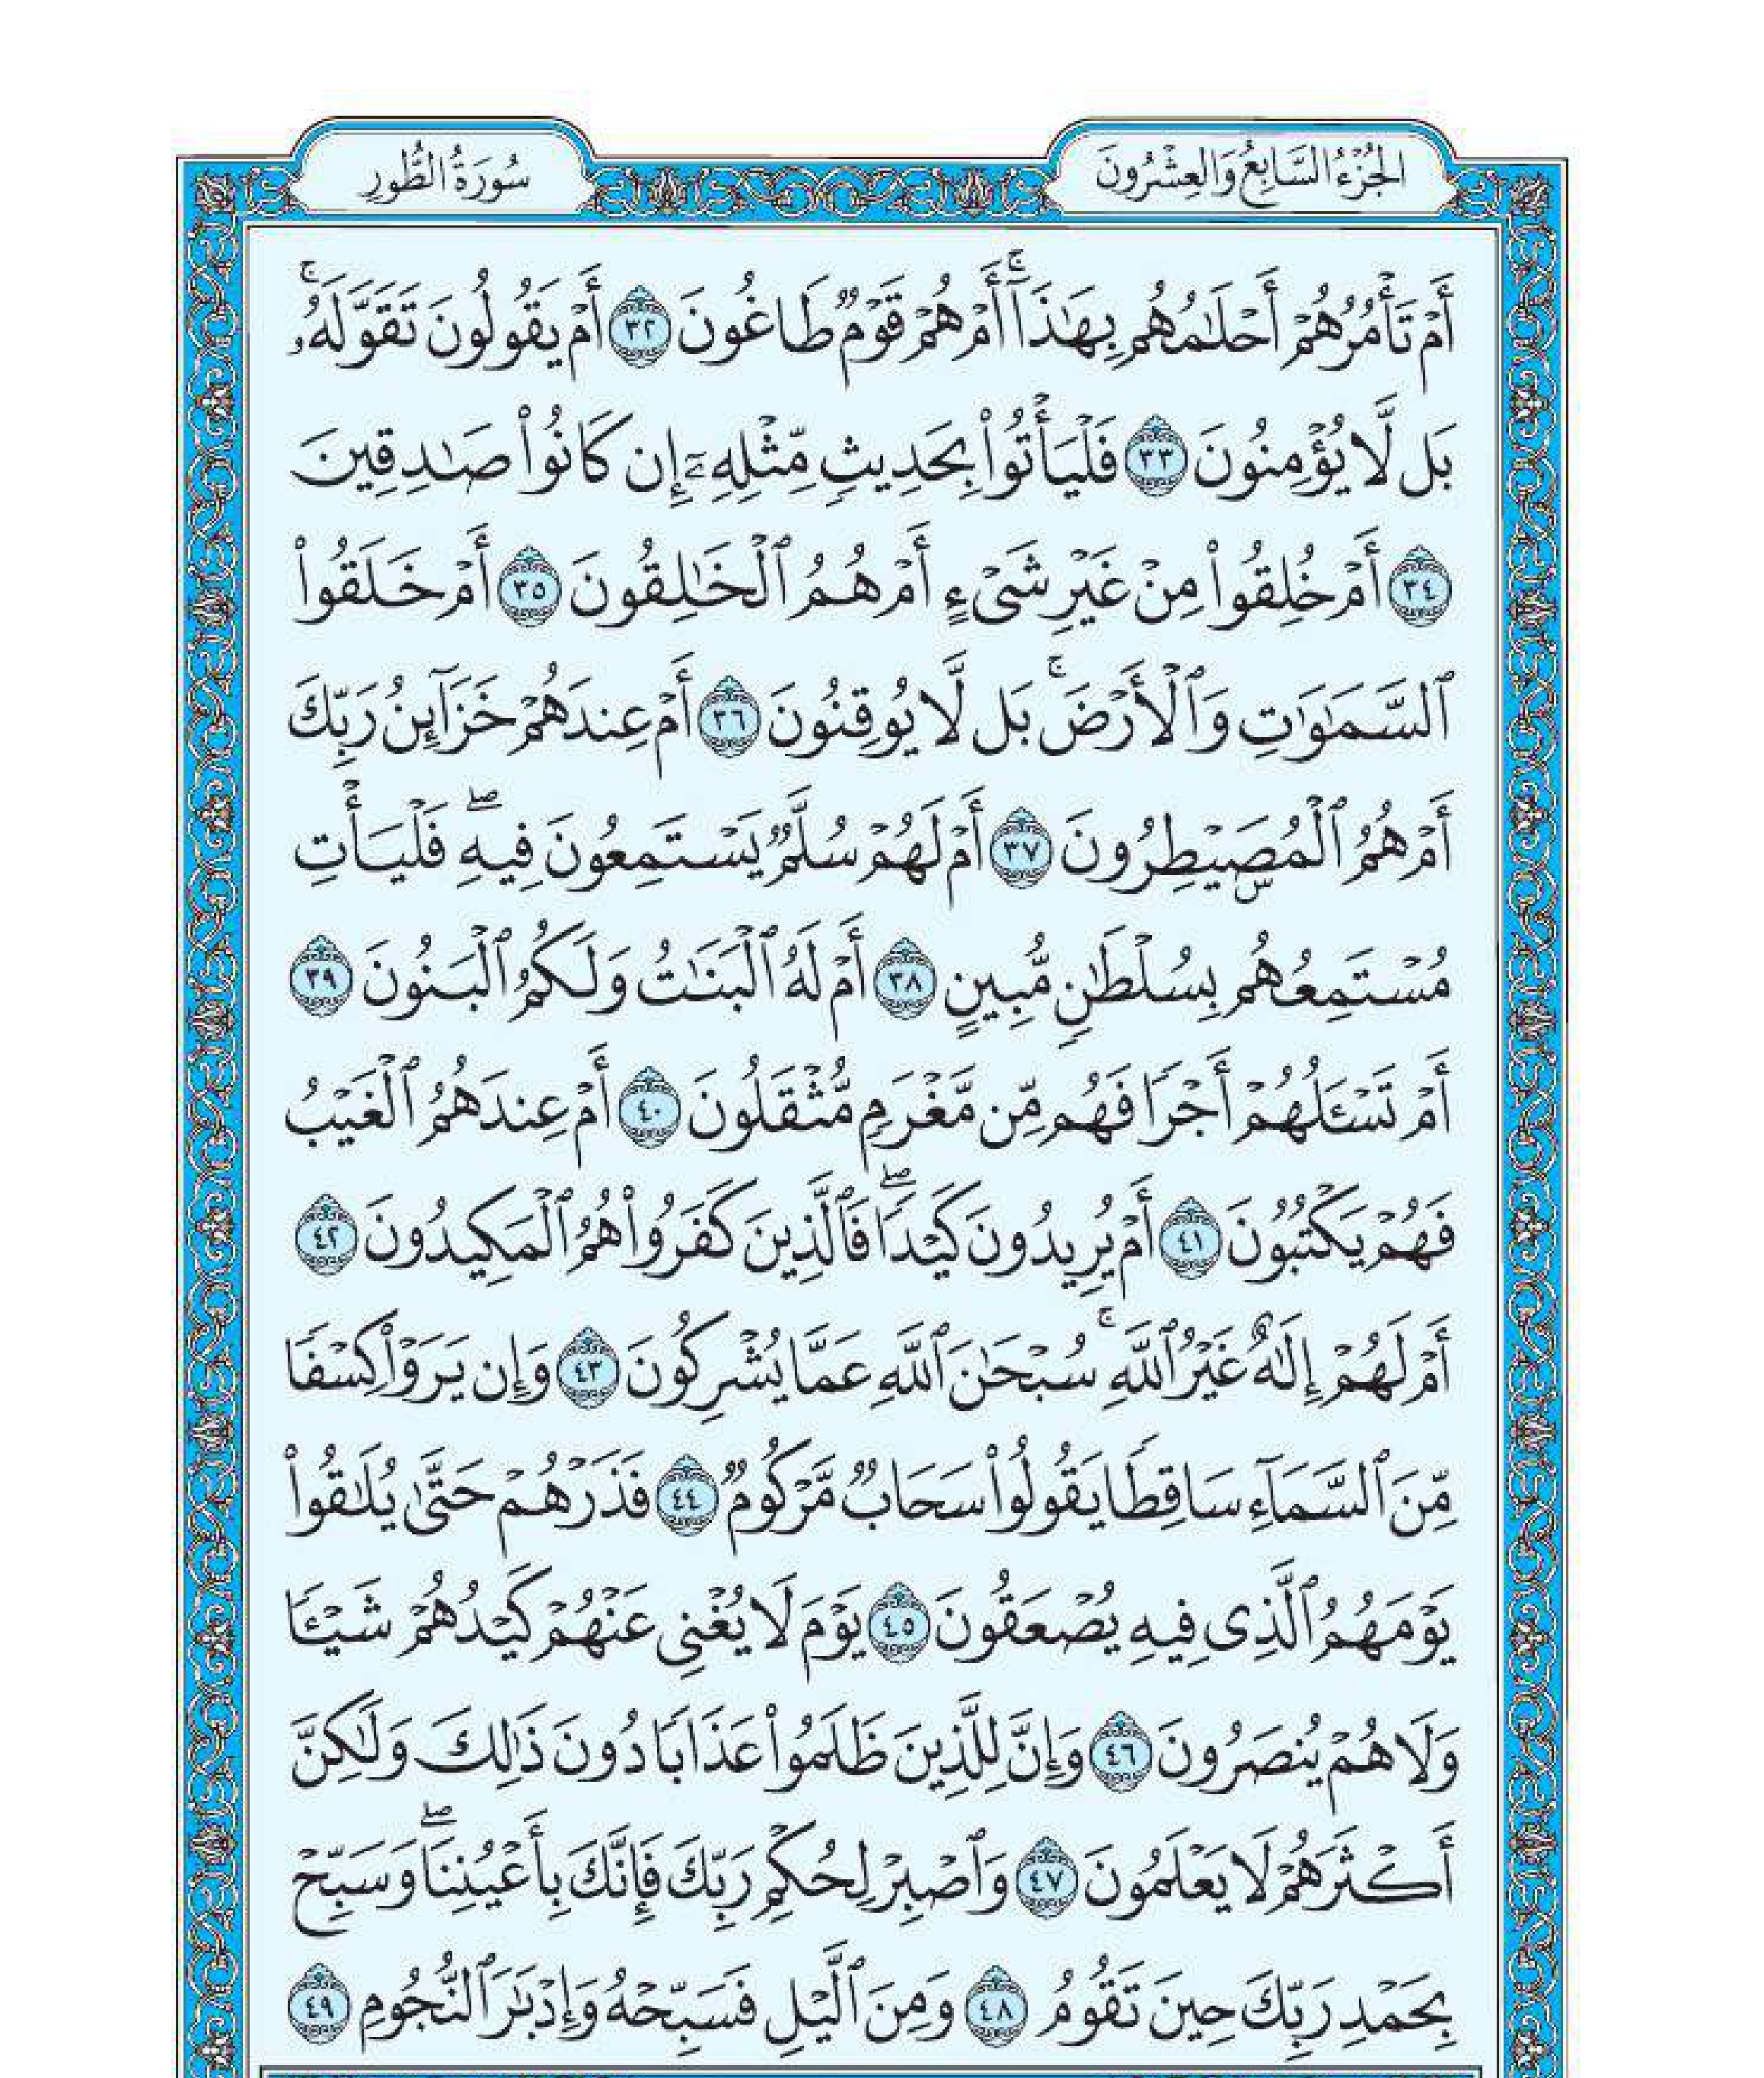 الجُزْءُ السَّابِعُ وَالعِشْرُونَ
سُورَةُ الطُّورِ
أَمْ تَأْمُرُهُمْ أَحْلَٰمُهُم بِهَٰذَآ ۚ أَمْ هُمْ قَوْمٌ طَاغُونَ ٣٢ أَمْ يَقُولُونَ تَقَوَّلَهُۥ ۚ
بَل لَّا يُؤْمِنُونَ ٣٣ فَلْيَأْتُوا۟ بِحَدِيثٍ مِّثْلِهِۦٓ إِن كَانُوا۟ صَٰدِقِينَ
٣٤ أَمْ خُلِقُوا۟ مِنْ غَيْرِ شَىْءٍ أَمْ هُمُ ٱلْخَٰلِقُونَ ٣٥ أَمْ خَلَقُوا۟
ٱلسَّمَٰوَٰتِ وَٱلْأَرْضَ ۚ بَل لَّا يُوقِنُونَ ٣٦ أَمْ عِندَهُمْ خَزَآئِنُ رَبِّكَ
أَمْ هُمُ ٱلْمُصَۣيْطِرُونَ ٣٧ أَمْ لَهُمْ سُلَّمٌ يَسْتَمِعُونَ فِيهِ ۖ فَلْيَأْتِ
مُسْتَمِعُهُم بِسُلْطَٰنٍ مُّبِينٍ ٣٨ أَمْ لَهُ ٱلْبَنَٰتُ وَلَكُمُ ٱلْبَنُونَ ٣٩
أَمْ تَسْـَٔلُهُمْ أَجْرًا فَهُم مِّن مَّغْرَمٍ مُّثْقَلُونَ ٤٠ أَمْ عِندَهُمُ ٱلْغَيْبُ
فَهُمْ يَكْتُبُونَ ٤١ أَمْ يُرِيدُونَ كَيْدًا ۖ فَٱلَّذِينَ كَفَرُوا۟ هُمُ ٱلْمَكِيدُونَ ٤٢
أَمْ لَهُمْ إِلَٰهٌ غَيْرُ ٱللَّهِ ۚ سُبْحَٰنَ ٱللَّهِ عَمَّا يُشْرِكُونَ ٤٣ وَإِن يَرَوْا۟ كِسْفًا
مِّنَ ٱلسَّمَآءِ سَاقِطًا يَقُولُوا۟ سَحَابٌ مَّرْكُومٌ ٤٤ فَذَرْهُمْ حَتَّىٰ يُلَٰقُوا۟
يَوْمَهُمُ ٱلَّذِى فِيهِ يُصْعَقُونَ ٤٥ يَوْمَ لَا يُغْنِى عَنْهُمْ كَيْدُهُمْ شَيْـًٔا
وَلَا هُمْ يُنصَرُونَ ٤٦ وَإِنَّ لِلَّذِينَ ظَلَمُوا۟ عَذَابًا دُونَ ذَٰلِكَ وَلَٰكِنَّ
أَكْثَرَهُمْ لَا يَعْلَمُونَ ٤٧ وَٱصْبِرْ لِحُكْمِ رَبِّكَ فَإِنَّكَ بِأَعْيُنِنَا ۖ وَسَبِّحْ
بِحَمْدِ رَبِّكَ حِينَ تَقُومُ ٤٨ وَمِنَ ٱلَّيْلِ فَسَبِّحْهُ وَإِدْبَٰرَ ٱلنُّجُومِ ٤٩